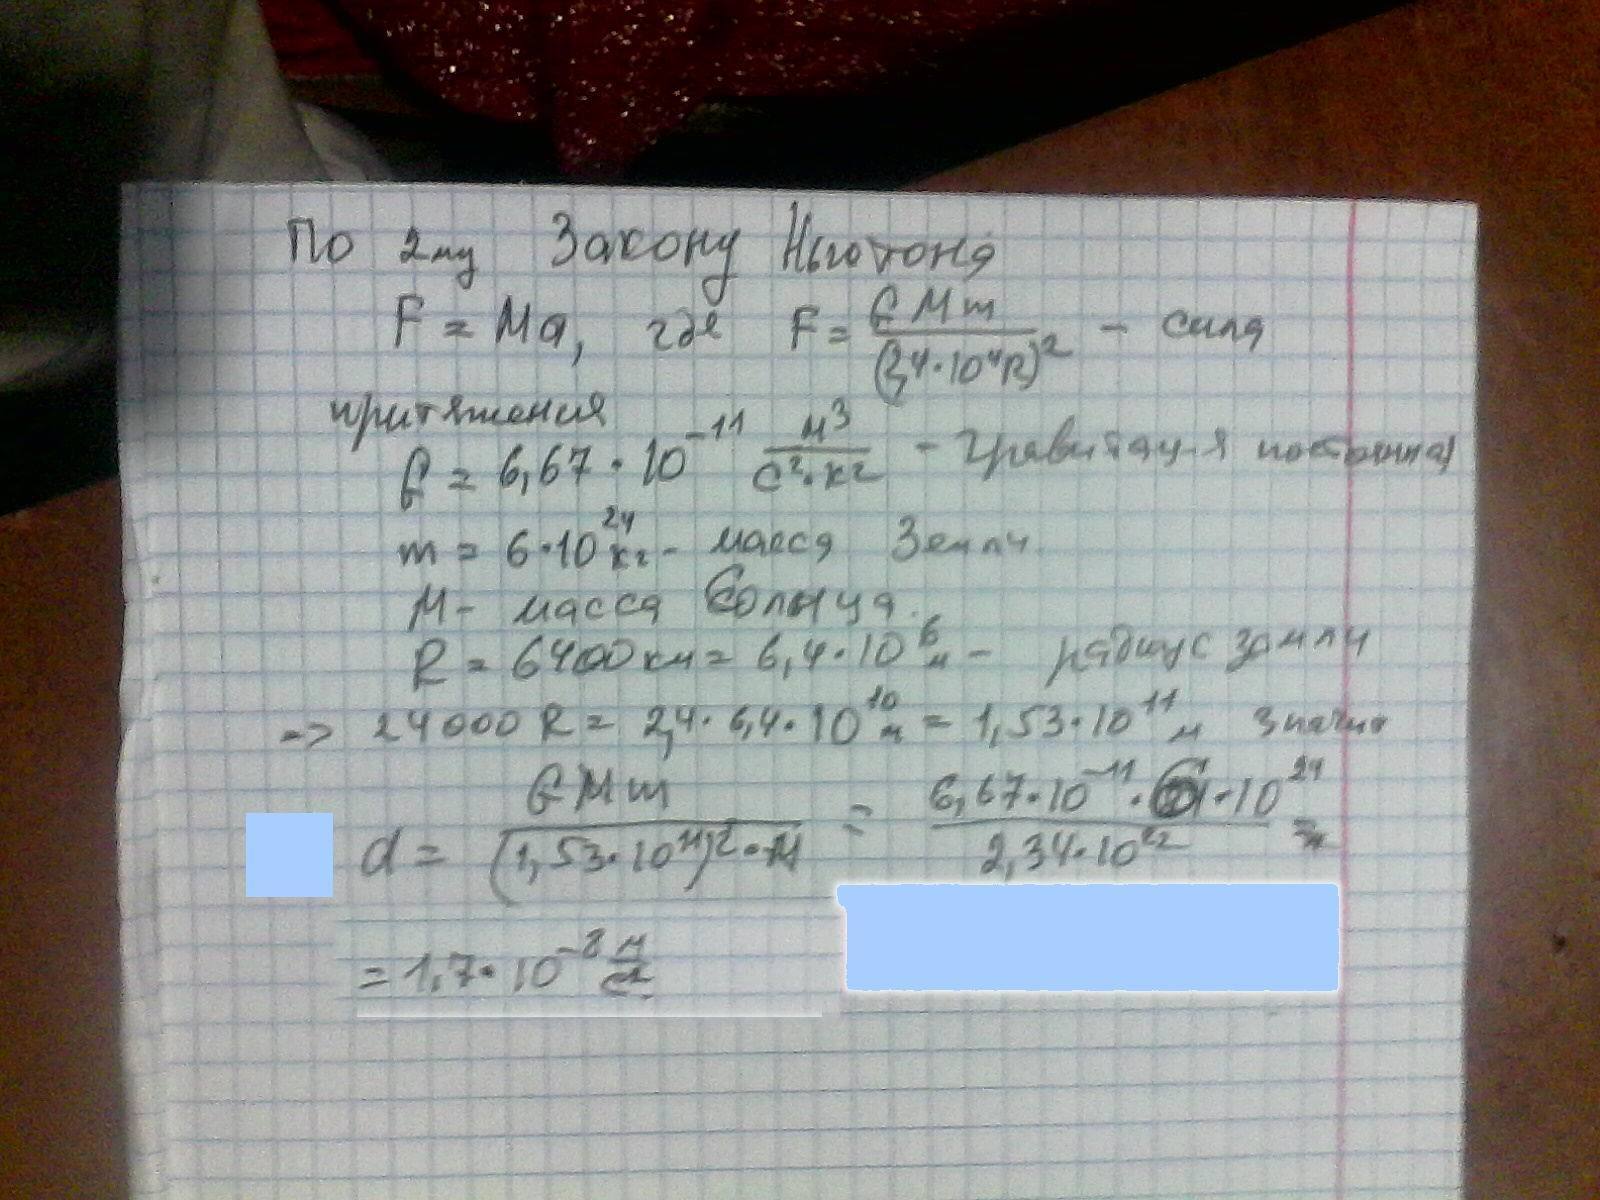 По 2му Закону Ньютона
F = Ma, где F = GMm/(2,4·10⁴R)² - сила
притяжения
G = 6,67·10⁻¹¹ м³/с²·кг - гравитац-я постоянная
m = 6·10²⁴кг - масса Земли.
M - масса Солнца.
R = 6400км = 6,4·10⁶м - радиус земли
=> 24000R = 2,4·6,4·10¹⁰м = 1,53·10¹¹м значит
a = GMm/(1,53·10¹¹)²·M = 6,67·10⁻¹¹··10²⁴/2,34·10²² =
= 1,7·10⁻² м/с².